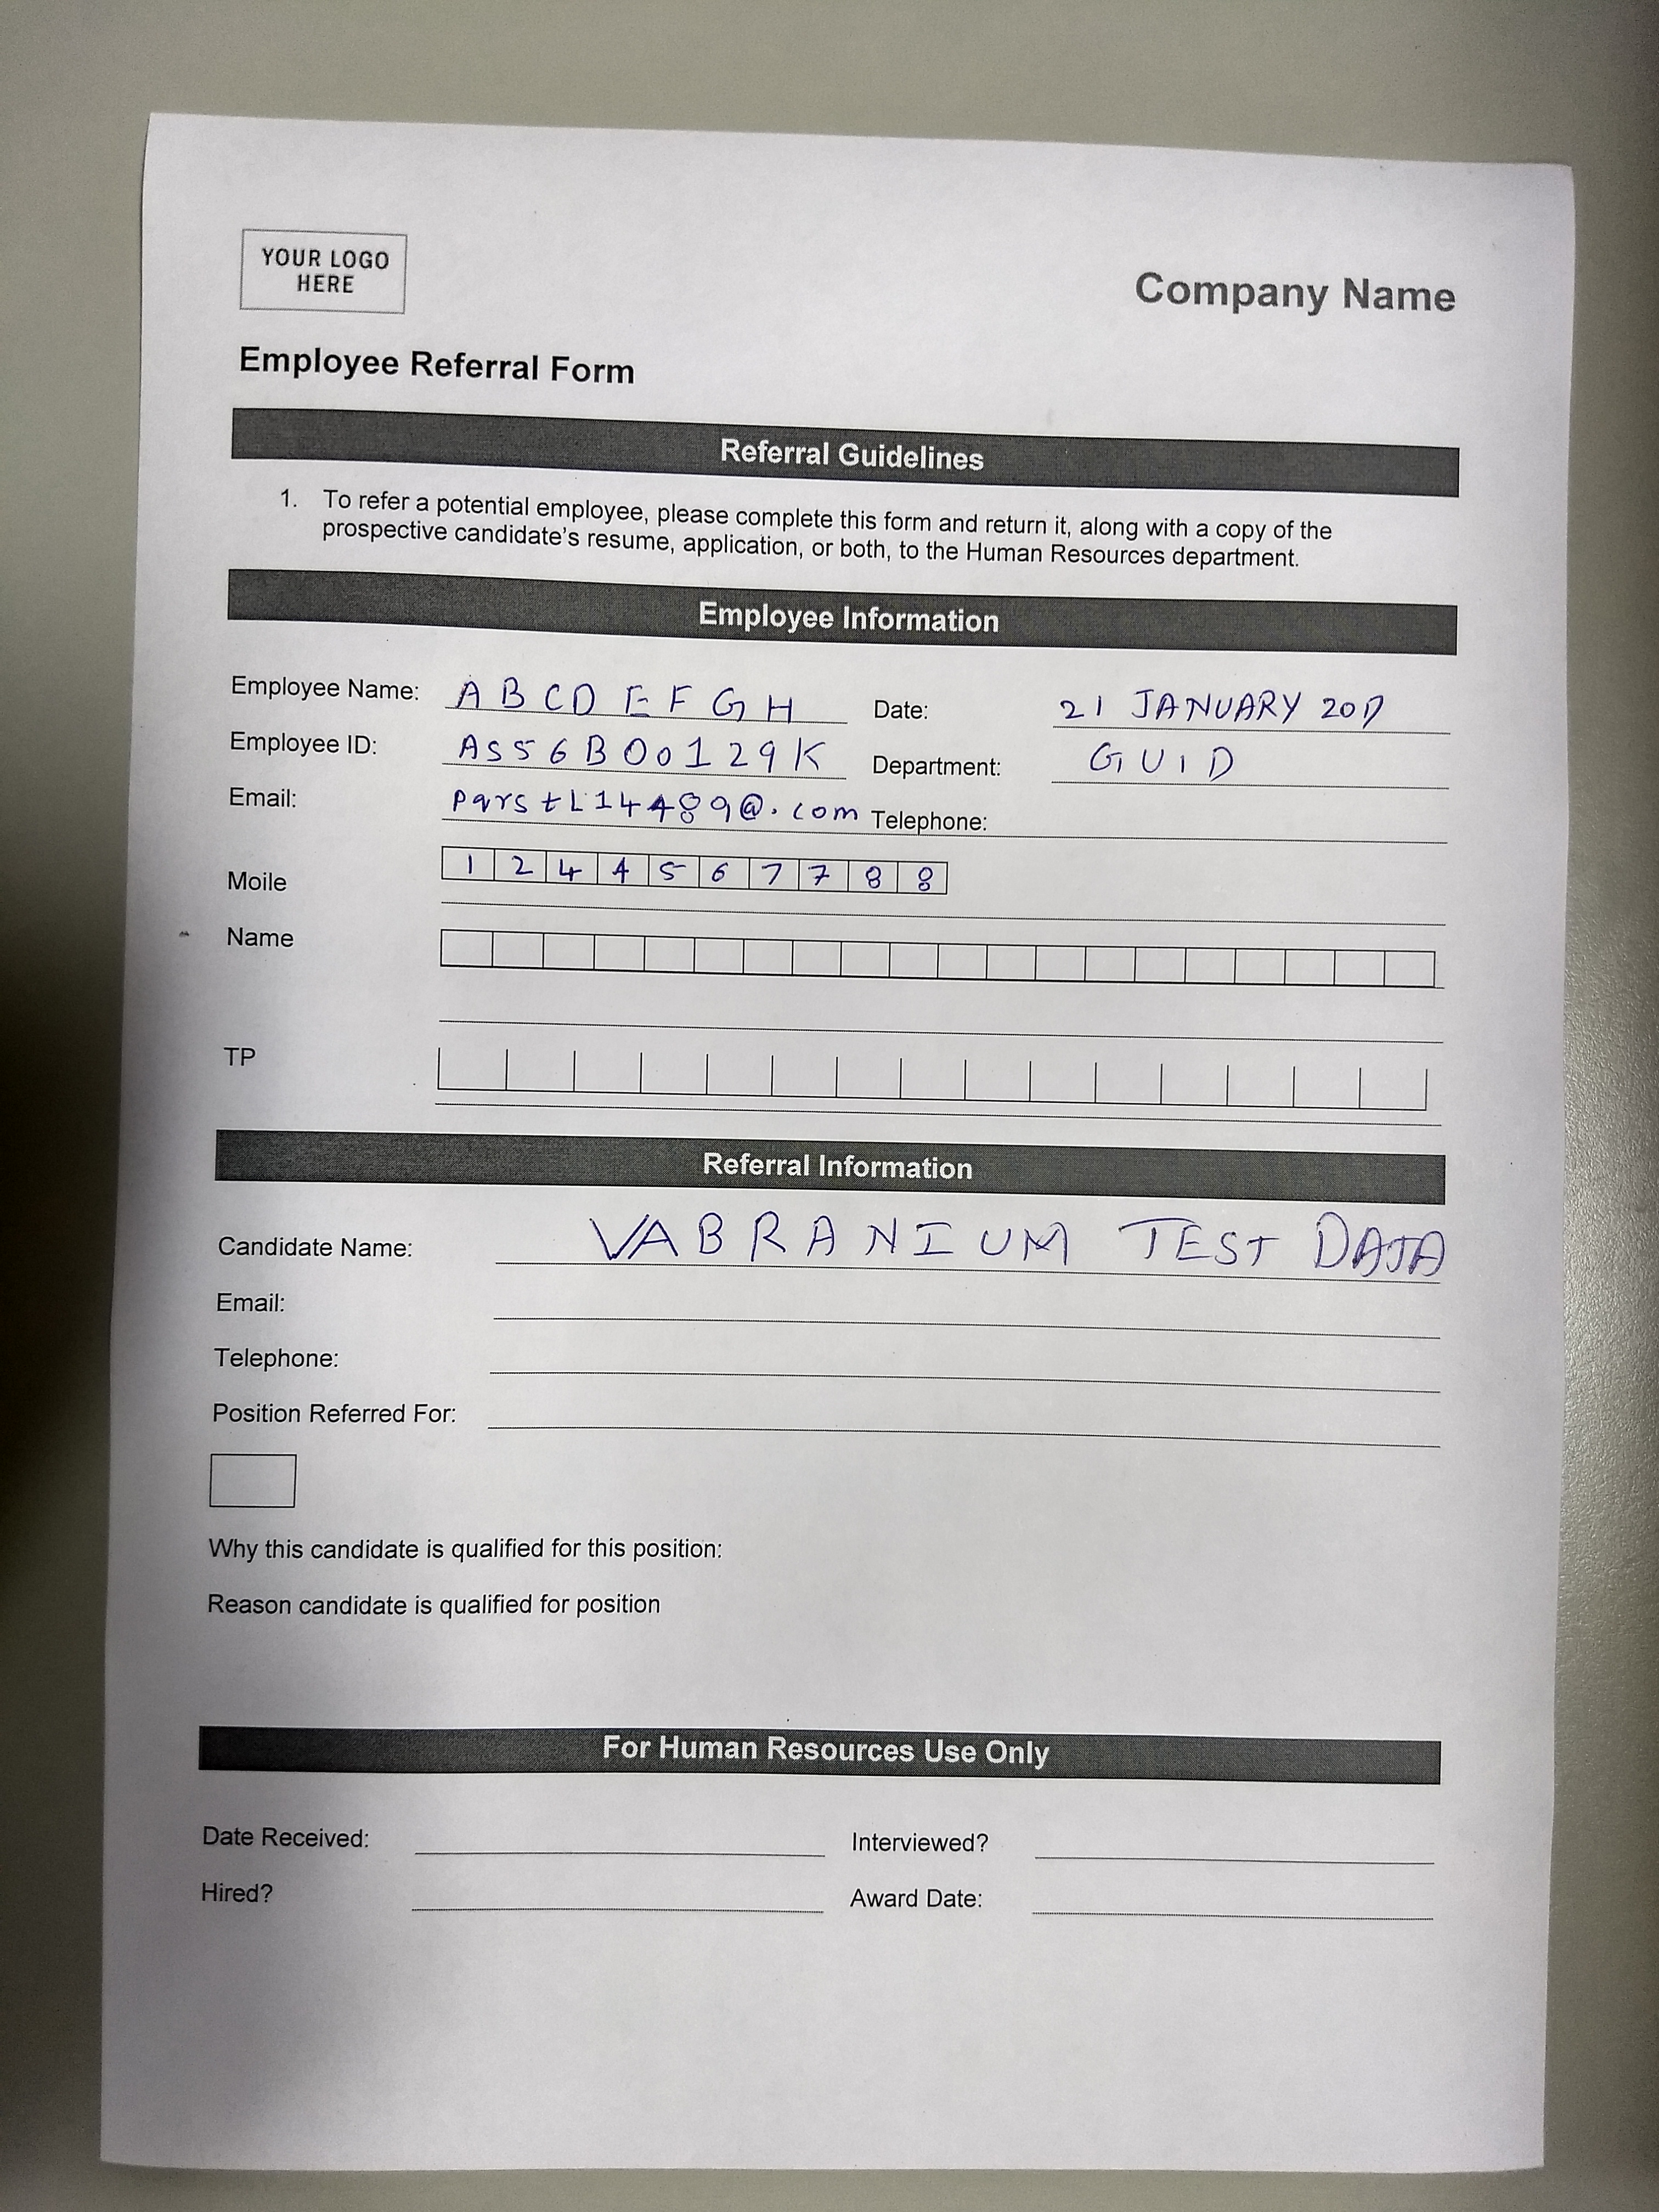 YOUR LOGO
HERE
Company Name
Employee Referral Form
Referral Guidelines
1. To refer a potential employee, please complete this form and return it, along with a copy of the
prospective candidate's resume, application, or both, to the Human Resources department.
Employee Information
Employee Name: A B C D E F G H Date: 21 JANUARY
Employee ID: AS56B00129K Department: GUID
Email: pqrstL14489@.com Telephone:
Moile 1 2 4 4 5 6 7 7 8 8
Name
TP
Referral Information
Candidate Name: VABRANIUM TEST DATA
Email:
Telephone:
Position Referred For:
Why this candidate is qualified for this position:
Reason candidate is qualified for position
For Human Resources Use Only
Date Received: Interviewed?
Hired? Award Date: